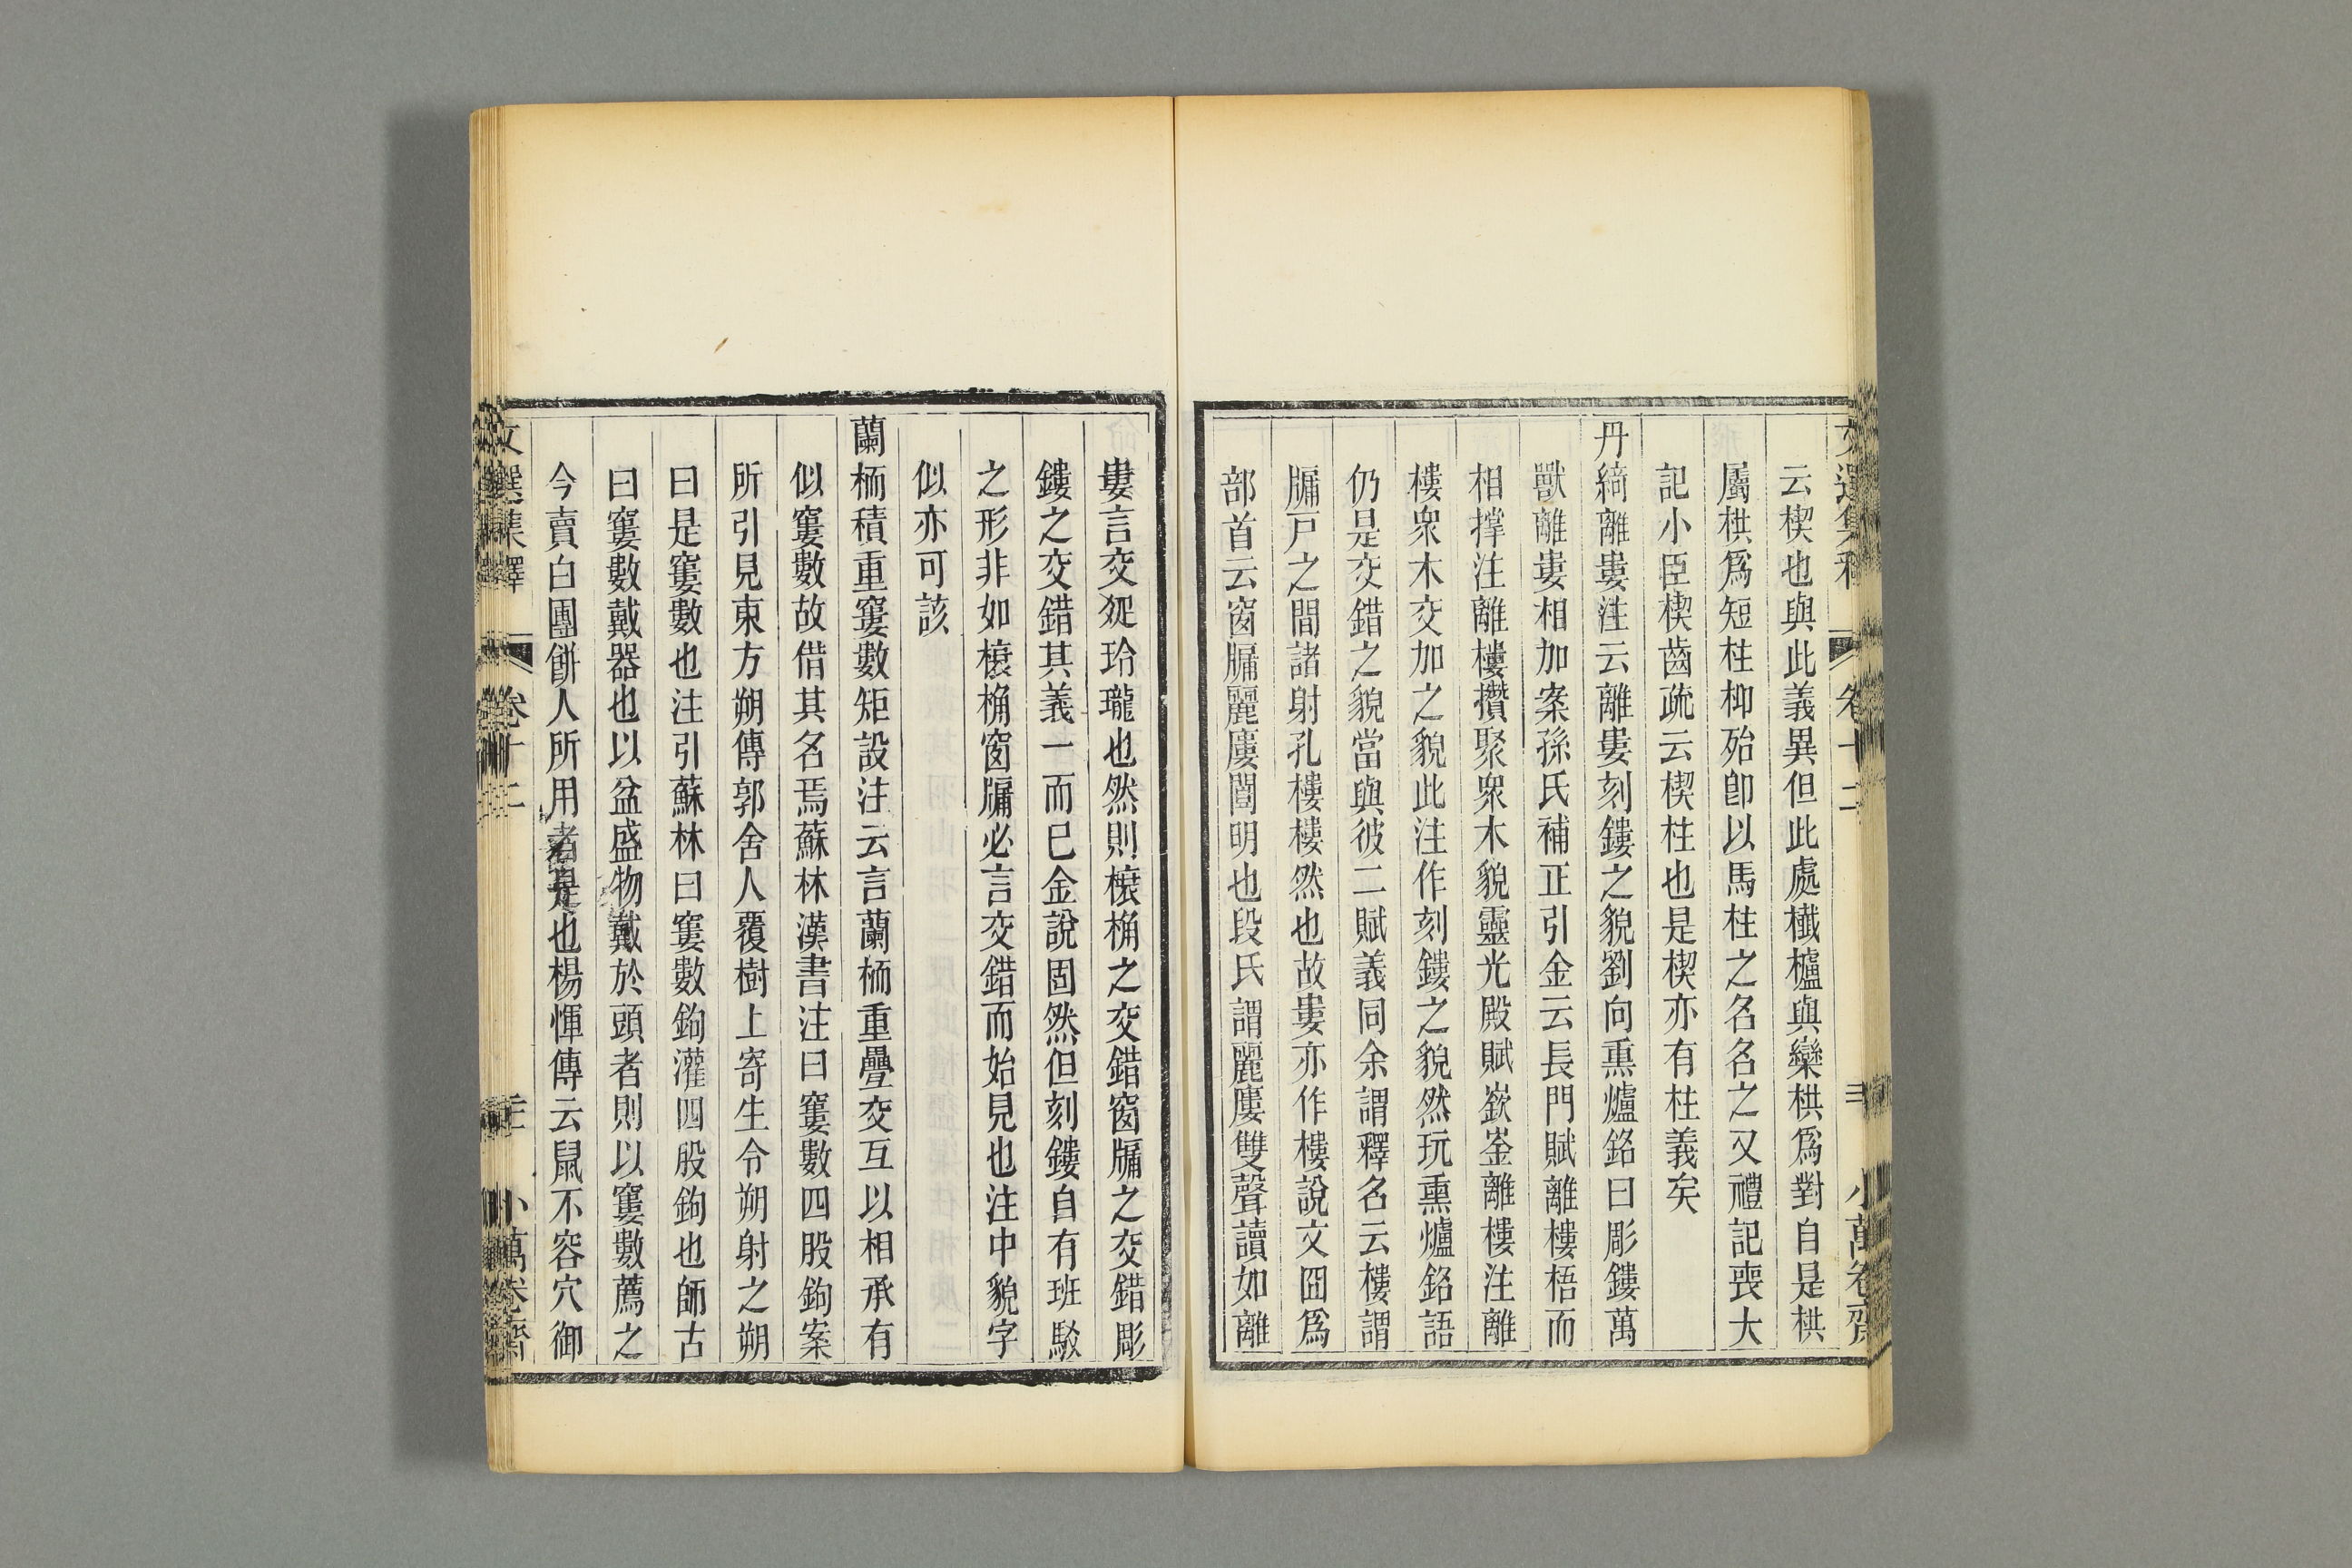 文選集釋 卷十二 小萬卷齋
云楔也與此義異但此處櫼櫨與欒栱爲對自是栱
屬栱爲短柱枊殆卽以馬柱之名名之又禮記喪大
記小臣楔齒疏云楔柱也是楔亦有柱義矣
丹綺離婁注云離婁刻鏤之貌劉向熏爐銘曰彫鏤萬
獸離婁相加案孫氏補正引金云長門賦離樓梧而
相撐注離樓攢聚衆木貌靈光殿賦嶔崟離樓注離
樓衆木交加之貌此注作刻鏤之貌然玩熏爐銘語
仍是交錯之貌當與彼二賦義同余謂釋名云樓謂
牖戸之間諸射孔樓樓然也故婁亦作樓說文囧爲
部首云窗牖麗廔闓明也段氏謂麗廔雙聲讀如離
婁言交延玲瓏也然則榱桷之交錯窗牖之交錯彫
鏤之交錯其義一而已金說固然但刻鏤自有班駁
之形非如榱桷窗牖必言交錯而始見也注中貌字
似亦可該
蘭栭積重窶數矩設注云言蘭栭重疊交互以相承有
似窶數故借其名焉蘇林漢書注曰窶數四股鉤案
所引見東方朔傳郭舍人覆樹上寄生令朔射之朔
曰是窶數也注引蘇林曰窶數鉤灌四股鉤也師古
曰窶數戴器也以盆盛物戴於頭者則以窶數薦之
今賣白團餅人所用者是也楊惲傳云鼠不容穴御
文選集釋 卷十二 小萬卷齋